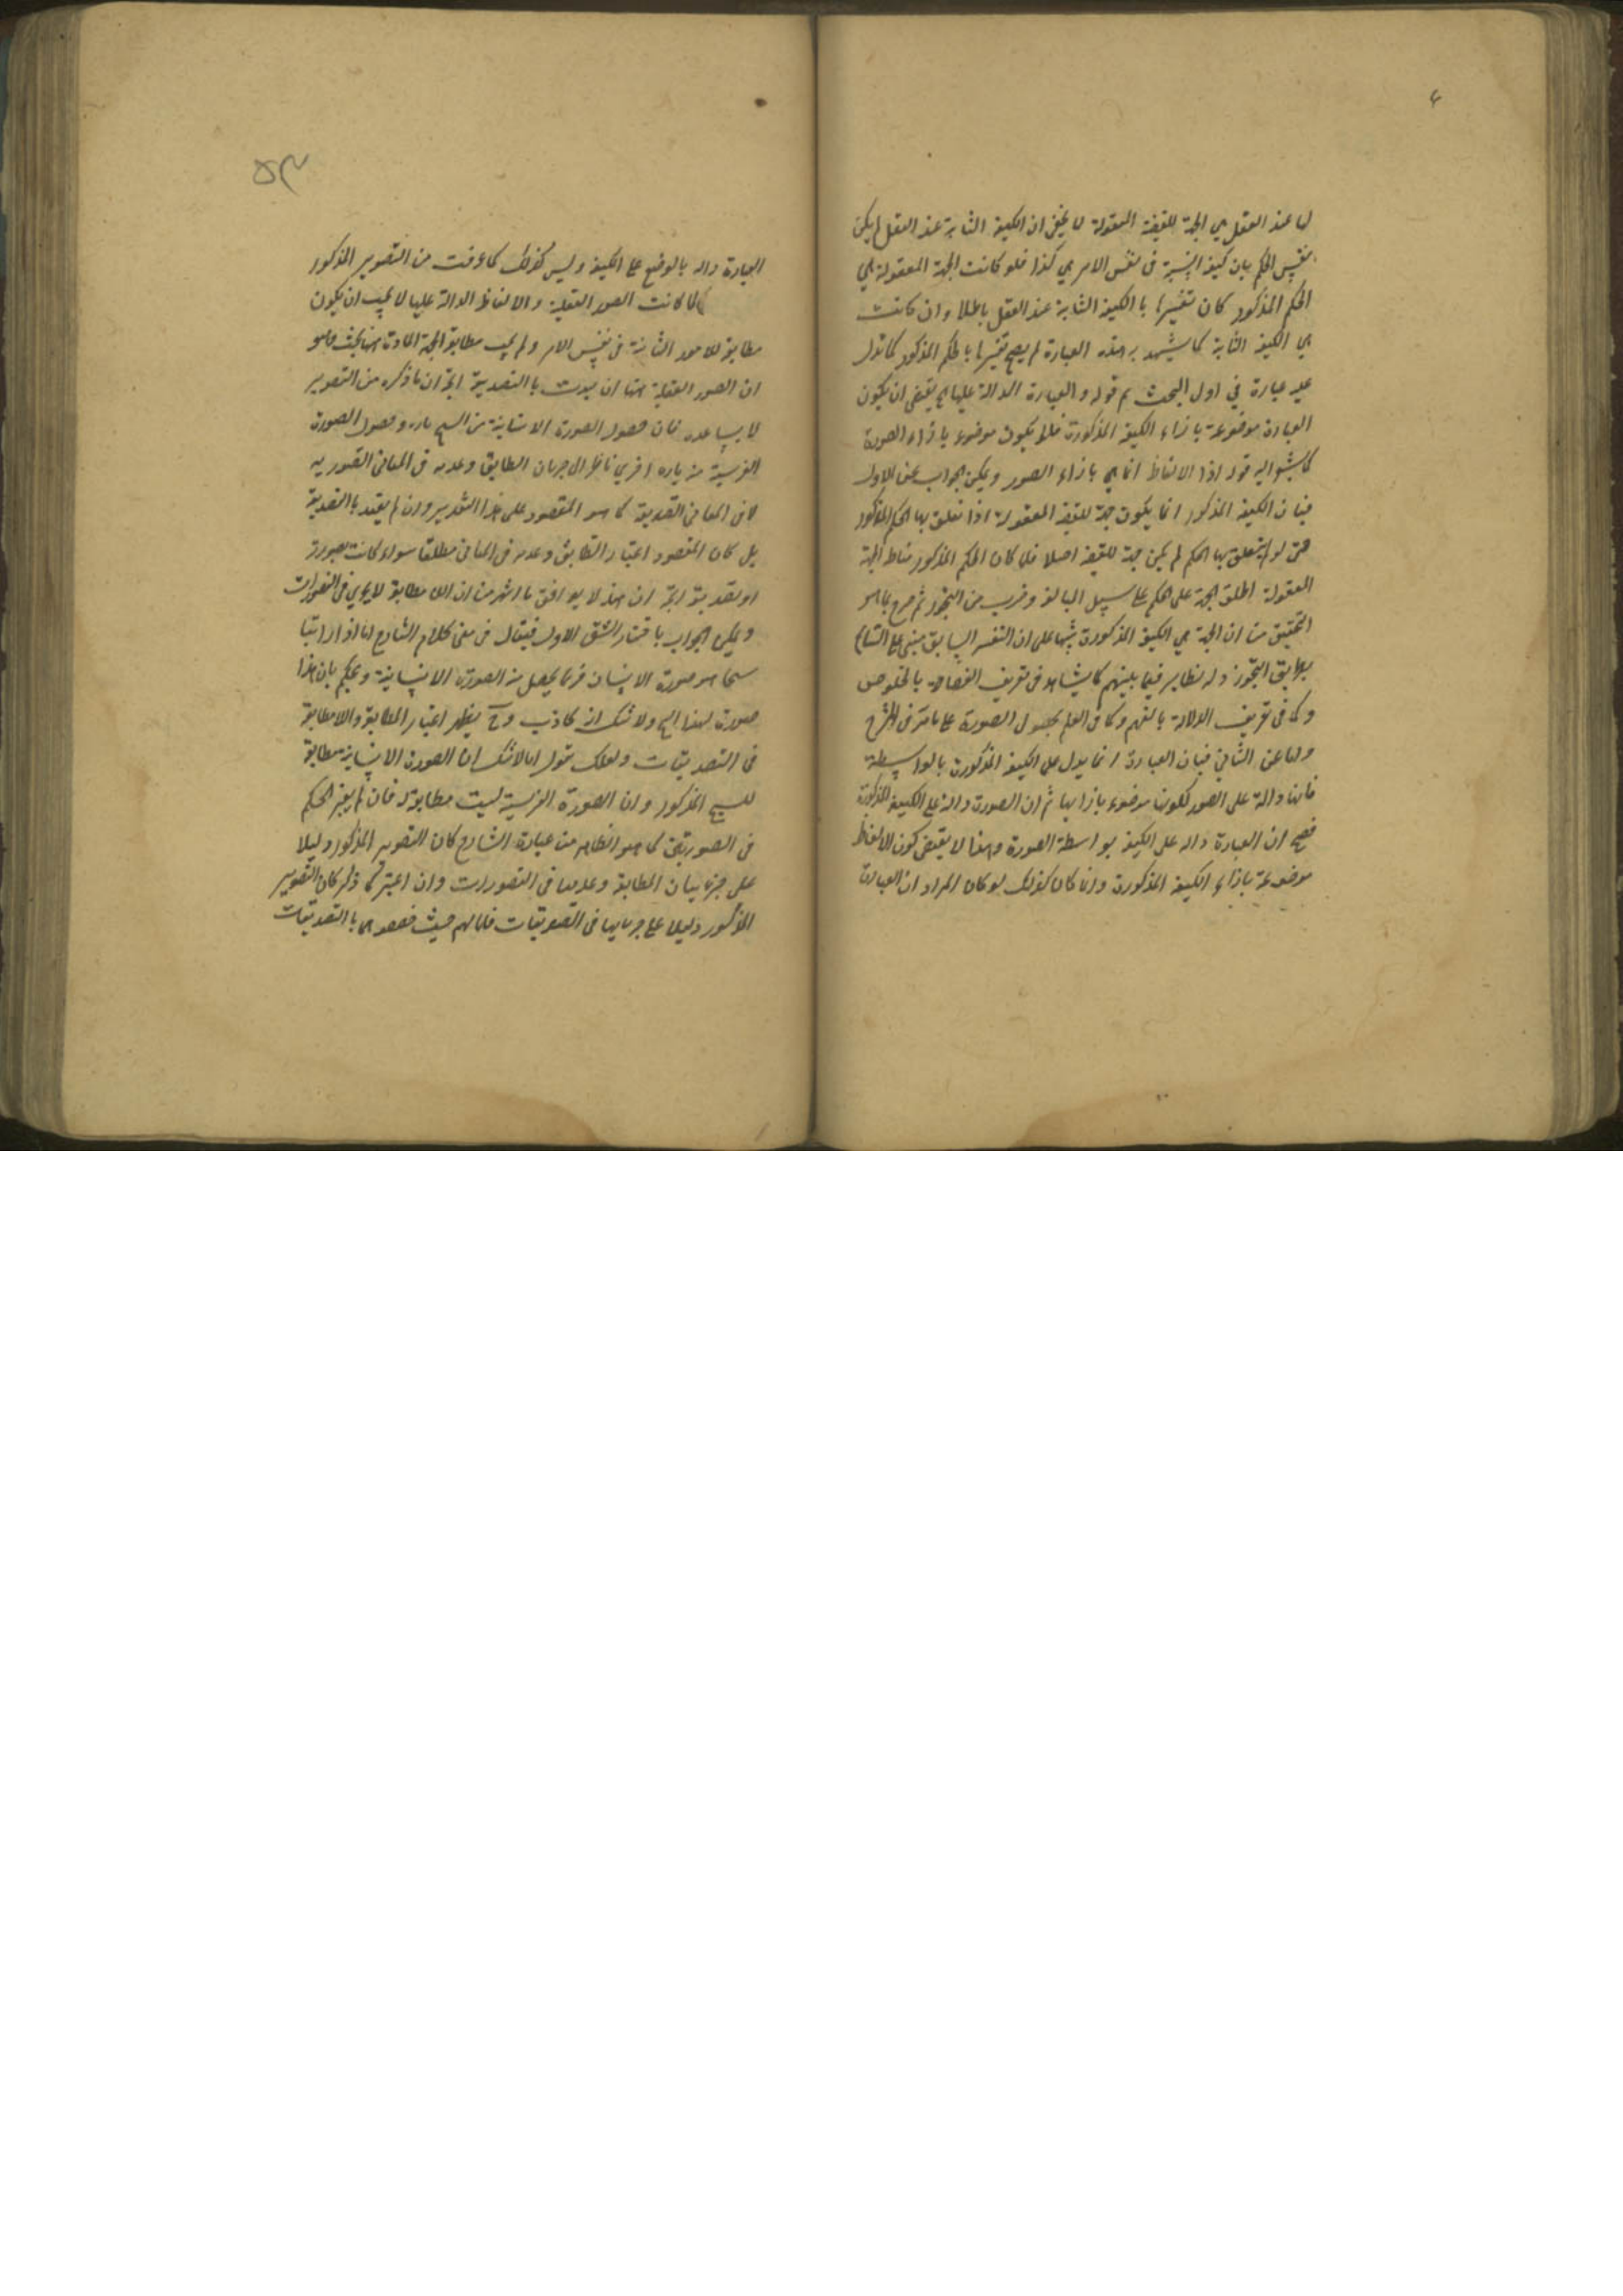 لها عند العقل هي الجهة للقضية المعقولة لا يخفى ان الكيفية الثابتة عند العقل لم يكن
نفس الحكم بان كيفية النسبة في نفس الامر هي كذا فلو كانت الجهة المعقولة هي
الحكم المذكور كان تفسيرها بالكيفية الثابتة عند العقل باطلا وان كانت
هي الكيفية الثابتة كما يشهد به هذه العبارة لم يصح تفسيرها بالحكم المذكور كما تدل
عليه عبارة في اول البحث ثم قوله والعبارة الدالة عليها الخ يقتضى ان يكون
العبارة موضوعة بازاء الكيفية المذكورة فلا يكون موضوع بازاء الصورة
كما يشير اليه قوله اذا الالفاظ انما هي بازاء الصور ويمكن الجواب عن الاول
فبان الكيفية المذكور انما يكون جهة للقضية المعقولة اذا تعلق بها الحكم المذكور
حتى لو لم يتعلق بها الحكم لم يكن جهة للقضية اصلا فلما كان الحكم المذكور مناط الجهة
المعقولة اطلق الجهة على الحكم على سبيل المبالغة وضرب من التجوز ثم صرح بما هو
التحقيق من ان الجهة هي الكيفية المذكورة تنبيها على ان التفسير السابق مبنى على التسامح
بطريق التجوز وله نظاير فيما بينهم كما يشاهد في تعريف الفصاحة بالخلوص
وكما في تعريف الدلالة بالفهم وكما في العلم بحصول الصورة على ما مر في الشرح
واما عن الثاني فبان العبارة انما يدل على الكيفية المذكورة بالواسطة
فانها دالة على الصور لكونها موضوع بازايها ثم ان الصورة دالة على الكيفية المذكورة
فصح ان العبارة داله على الكيفية بواسطة الصورة وهذا لا يقتضى كون الالفاظ
موضوعة بازاء الكيفية المذكورة وانما كان كذلك لو كان المراد ان العبارة
العبارة داله بالوضع على الكيفية وليس كذلك كما عرفت من التقوير المذكور
لما كانت الصور العقلية والالفاظ الدالة عليها لا يجب ان يكون
مطابقة للامور الثابتة في نفس الامر ولم يجب مطابقة الجهة المادة ههنا بحث وهو
ان الصور العقلية ههنا ان بالتصديقية اتجه ان ما ذكره من التصوير
لا يساعده فان حصول الصورة الانسانية من الشبح تاره وحصول الصورة
الفرسية منه تاره اخرى ناظر الى جريان التطابق وعدمه في المعانى التصورية
لا في المعانى التصديقية كما هو المقصود على هذا التقدير وان لم يقيد بالتصديقية
بل كان المقصود اعتبار التطابق وعدمه في المعاني مطلقا سواء كانت تصورية
او تصديقية اتجه ان هذا لا يوافق ما اشتهر من ان اللامطابقة لا يجرى في التصورات
ويمكن الجواب باختيار الشق الاول فيقال في معنى كلام الشارح انا اذا راينا
شبحا هو صورة الانسان فربما يحصل منه الصورة الانسانية ويحكم بان هذا
صورة لهذا الشبح ولا شك انه كاذب وح يظهر اعتبار المطابقة واللامطابقة
في التصديقات ولعلك تقول انا لا شك ان الصورة الانسانية مطابقة
للشبح المذكور وان الصورة الفرسية ليست مطابقة له فان لم يعتبر الحكم
في الصورتين كما هو الظاهر من عبارة الشارح كان التصوير المذكور دليلا
على جريان المطابقة وعدمها في التصورات وان اعتبر كما ذكر كان التصوير
المذكور دليلا على جريانها في التصديقات فلما لهم حيث خصصوها بالتصديقات